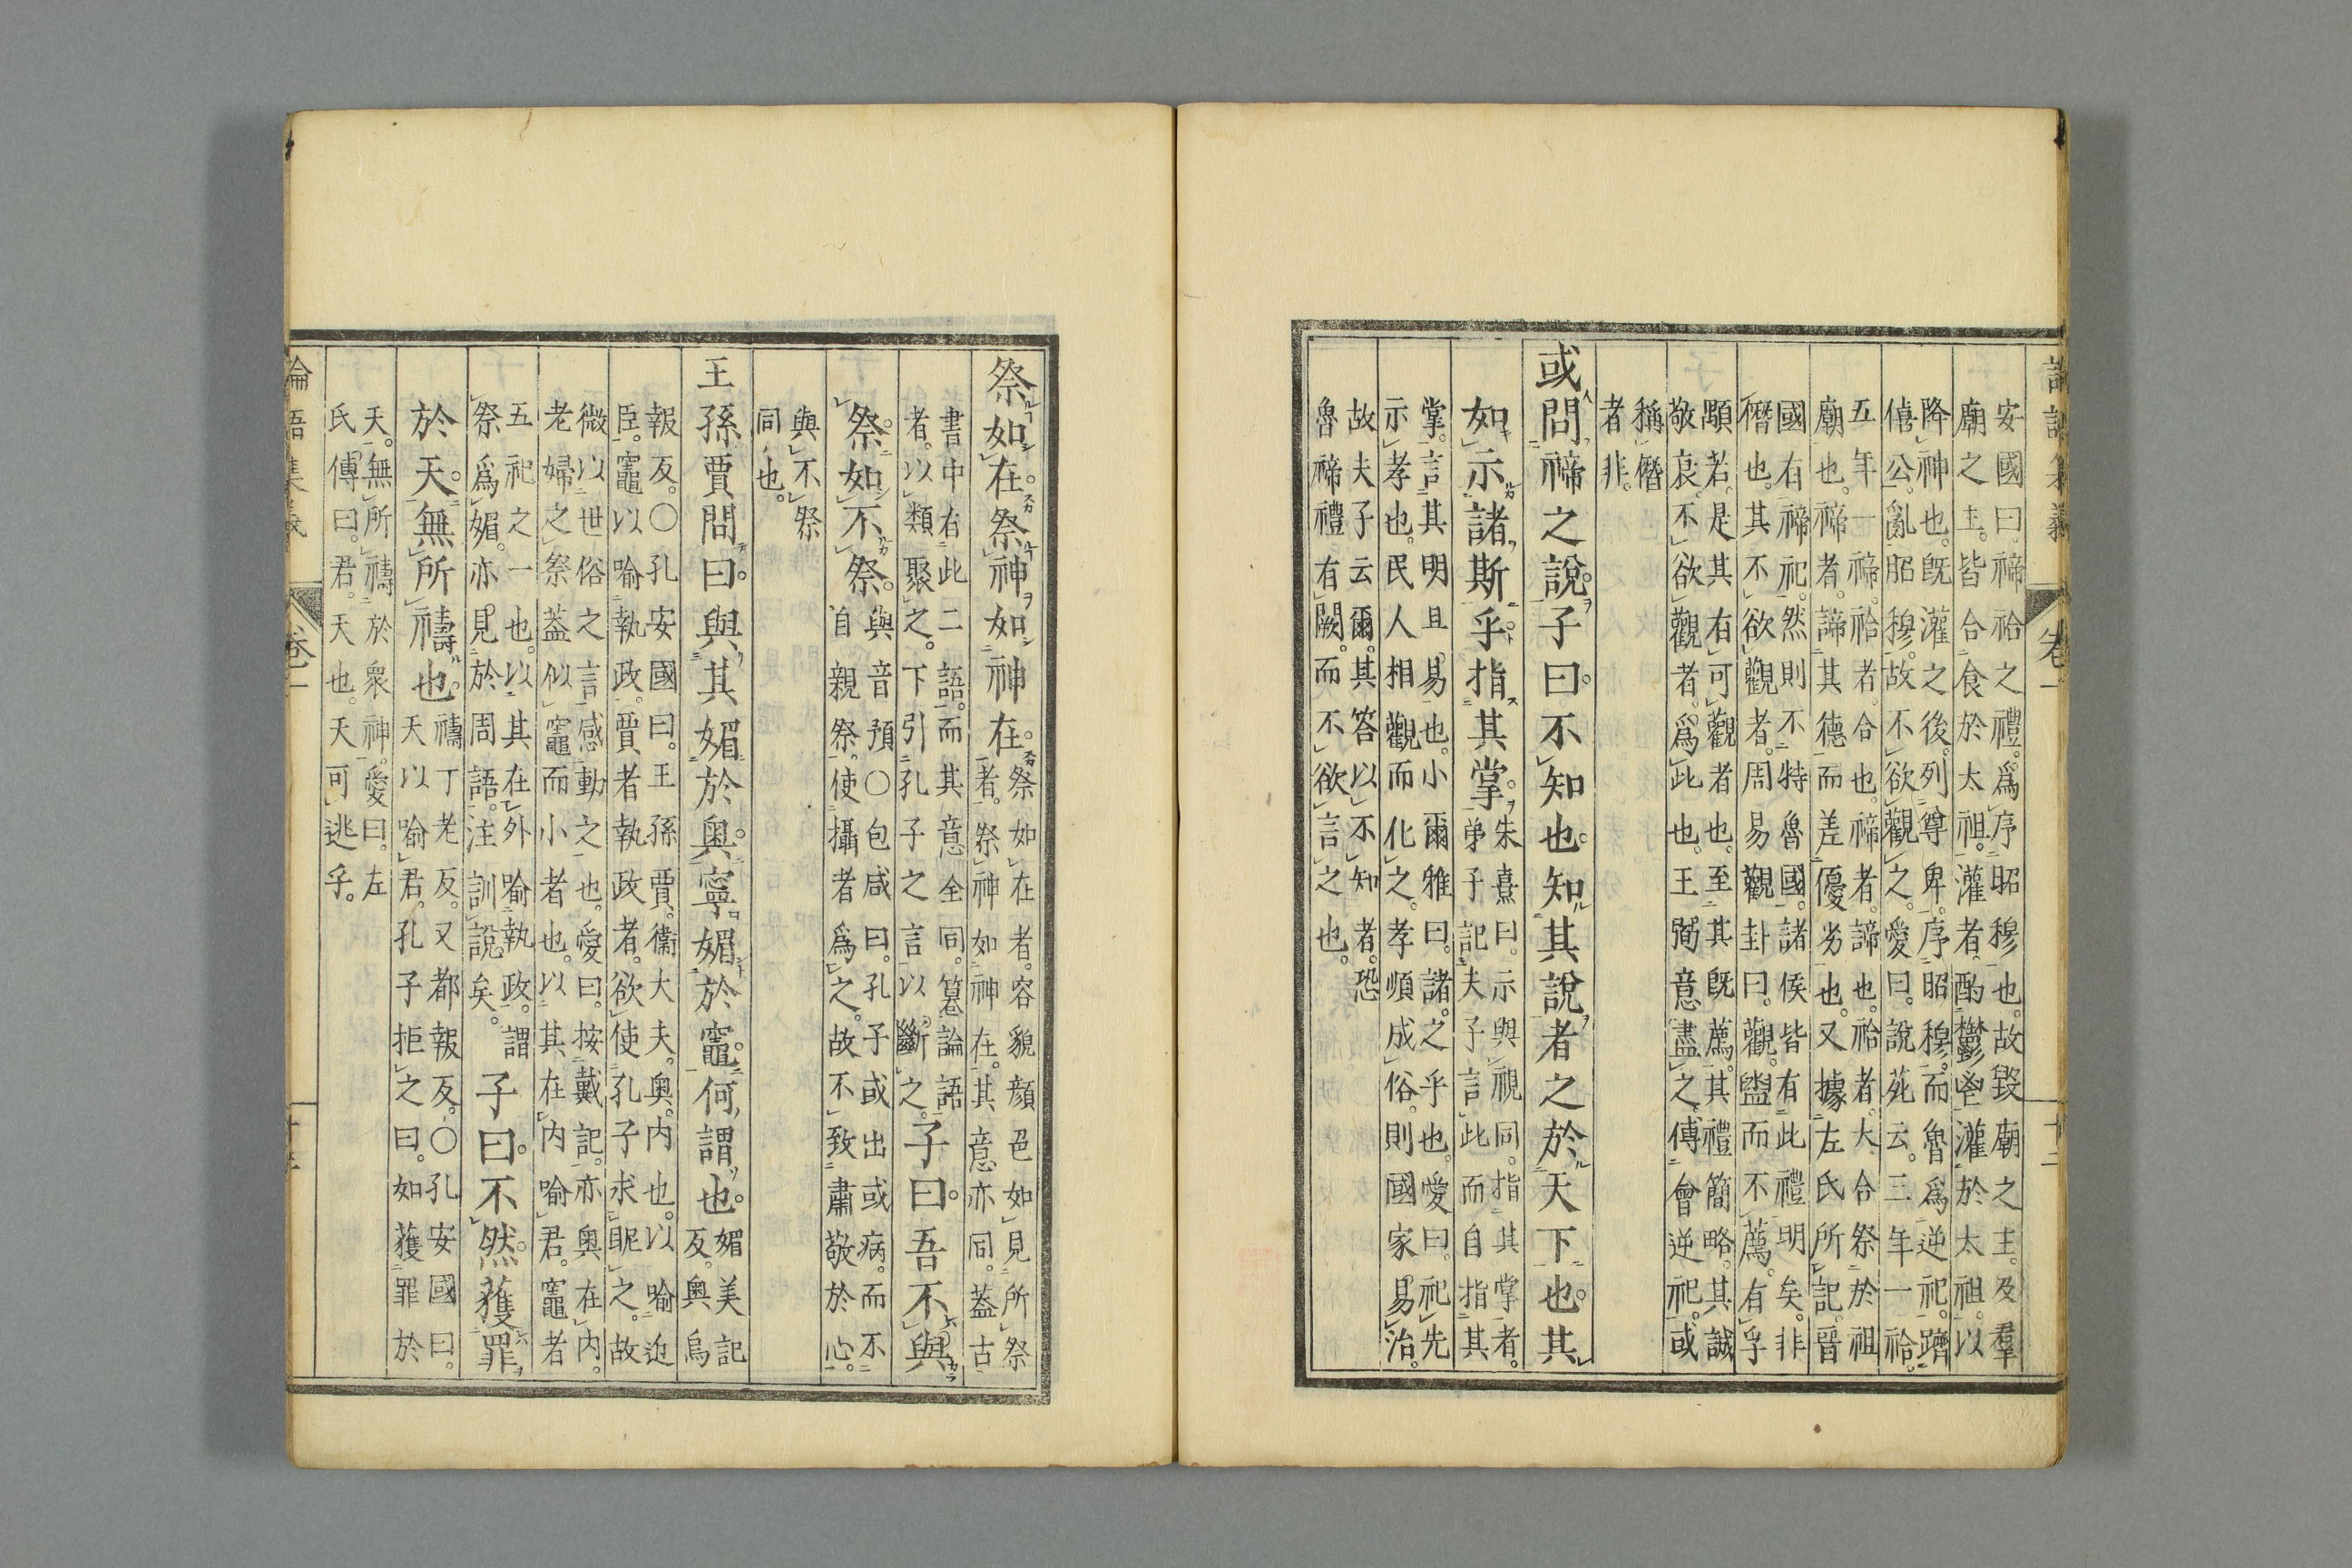 安國曰禘祫之禮。爲序昭穆也。故毀廟之主。及羣
廟之主。皆合食於太祖。灌者。酌鬱鬯灌於太祖。以
降神也。既灌之後。列尊卑。序昭穆。而魯爲逆祀。躋
僖公。亂昭穆。故不欲觀之。愛曰。說苑云。三年一祫。
五年一禘。祫者。合也。禘者。諦也。祫者。大合祭於祖
廟也。禘者。諦其德而差優劣也。又據左氏所記。晉
國有禘祀。然則不特魯國。諸侯皆有此禮明矣。非
僭也。其不欲觀者。周易觀卦曰。觀。盥而不薦。有孚
顒若。是其有可觀者也。至其既薦。其禮簡略。其誠
敬衰。不欲觀者。爲此也。王弼意盡之。傅會逆祀。或
稱僭
者非。
或問禘之說。子曰。不知也。知其說者之於天下也。其
如示諸斯乎。指其掌。
朱熹曰。示與視同。指其掌者。
弟子記夫子言此而自指其
掌。言其明且易也。小爾雅曰。諸。之乎也。愛曰。祀先
示孝也。民人相觀而化之。孝順成俗。則國家易治。
故夫子云爾。其答以不知者。恐
魯禘禮有闕。而不欲言之也。
祭如在。祭神如神在。
祭如在者。容貌顏色如見所祭
者。祭神如神在。其意亦同。蓋古
書中有此二語。而其意全同。纂論語
者。以類聚之。下引孔子之言以斷之。
子曰。吾不與
祭。如不祭。
與音預〇包咸曰。孔子或出或病。而不
自親祭。使攝者爲之。故不致肅敬於心。
與不祭
同也。
王孫賈問曰。與其媚於奧。寧媚於竈。何謂也。
媚美記
反。奧烏
報反。〇孔安國曰。王孫賈。衞大夫。奧。内也。以喻近
臣。竈以喻執政。賈者執政者。欲使孔子求昵之。故
微以世俗之言感動之也。愛曰。按戴記。亦奧在内。
老婦之祭。蓋似竈而小者也。以其在内喻君。竈者
五祀之一也。以其在外喻執政。謂
祭爲媚。亦見於周語。注訓說矣。
子曰。不然。獲罪
於天。無所禱也。
禱丁老反。又都報反。〇孔安國曰。
天以喻君。孔子拒之曰。如獲罪於
天。無所禱於衆神。愛曰。左
氏傳曰。君。天也。天可逃乎。
論語集義 卷一